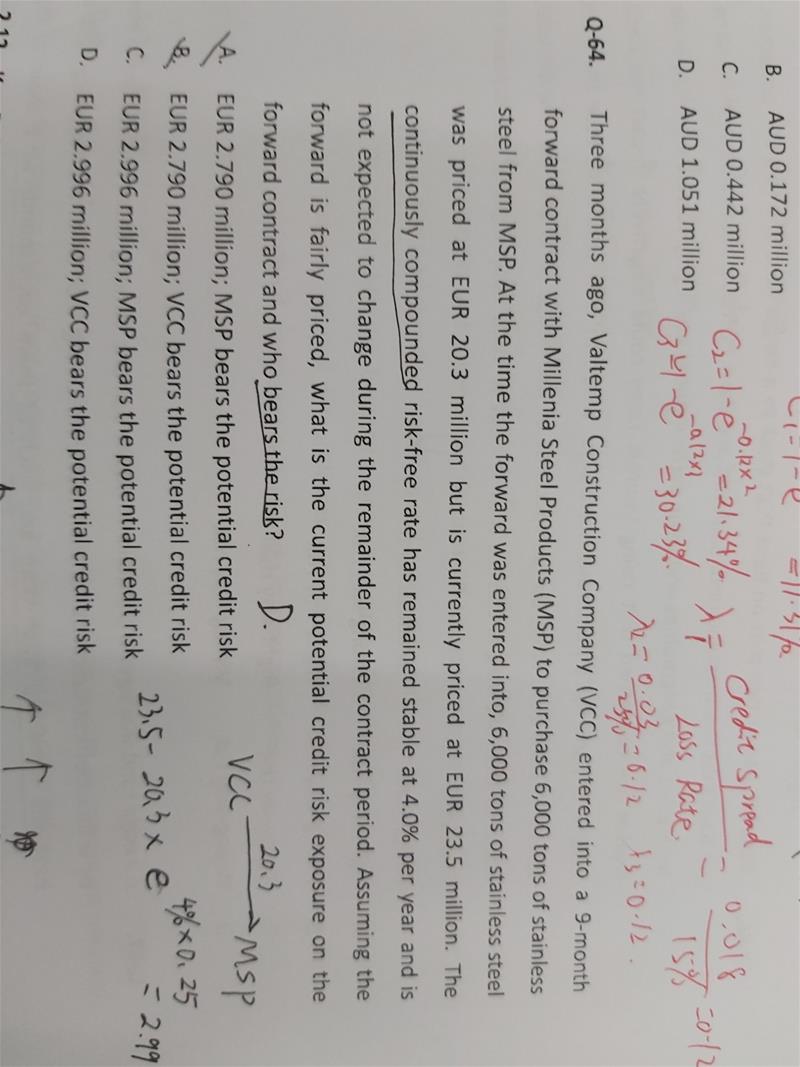 B. AUD 0.172 million
C. AUD 0.442 million
D. AUD 1.051 million
= 11.31%
C₂=1-e^-0.12x2 = 21.34%
C₃=1-e^-0.12x3 = 30.23%
λ₁= Credit Spread / Loss Rate = 0.018 / 15% =0.12
λ₂= 0.03 / 25% = 0.12 λ₃=0.12.
Q-64. Three months ago, Valtemp Construction Company (VCC) entered into a 9-month
forward contract with Millenia Steel Products (MSP) to purchase 6,000 tons of stainless
steel from MSP. At the time the forward was entered into, 6,000 tons of stainless steel
was priced at EUR 20.3 million but is currently priced at EUR 23.5 million. The
continuously compounded risk-free rate has remained stable at 4.0% per year and is
not expected to change during the remainder of the contract period. Assuming the
forward is fairly priced, what is the current potential credit risk exposure on the
forward contract and who bears the risk? D.
A. EUR 2.790 million; MSP bears the potential credit risk
B. EUR 2.790 million; VCC bears the potential credit risk
C. EUR 2.996 million; MSP bears the potential credit risk
D. EUR 2.996 million; VCC bears the potential credit risk
VCC 20.3 → MSP
23.5 - 20.3 x e^4%x0.25 = 2.99
↑ ↑